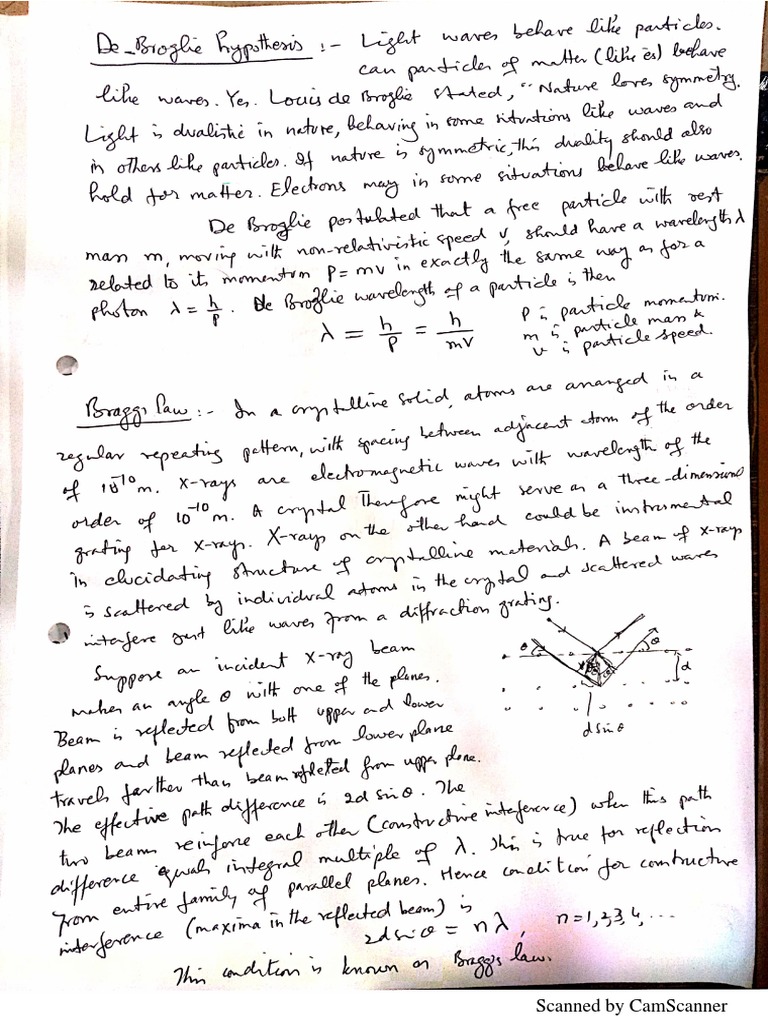 De-Broglie hypothesis :- Light waves behave like particles.
can particles of matter (like es) behave
like waves. Yes. Louis de Broglie stated, "Nature loves symmetry.
Light is dualistic in nature, behaving in some situations like waves and
in others like particles. If nature is symmetric, this duality should also
hold for matter. Electrons may in some situations behave like waves.
De Broglie postulated that a free particle with rest
mass m, moving with non-relativistic speed v, should have a wavelength λ
related to its momentum P = mv in exactly the same way as for a
photon λ = h/P. De Broglie wavelength of a particle is then
λ = h/P = h/mv
P is particle momentum.
m is particle mass &
v is particle speed.
Braggs law :- In a crystalline solid, atoms are arranged in a
regular repeating pattern, with spacing between adjacent atom of the order
of 10⁻¹⁰ m. X-rays are electromagnetic waves with wavelength of the
order of 10⁻¹⁰ m. A crystal Therefore might serve as a three-dimensional
grating for X-rays. X-rays on the other hand could be instrumental
in elucidating structure of crystalline materials. A beam of X-rays
is scattered by individual atoms in the crystal and scattered waves
interfere just like waves from a diffraction grating.
Suppose an incident X-ray beam
makes an angle θ with one of the planes.
Beam is reflected from both upper and lower
planes and beam reflected from lower plane
travels farther than beam reflected from upper plane.
The effective path difference is 2d sinθ. The
two beams reinforce each other (constructive inteference) when this path
difference equals integral multiple of λ. This is true for reflection
from entire family of parallel planes. Hence condition for constructive
interference (maxima in the reflected beam) is
2d sinθ = nλ, n = 1,2,3,4, ...
This condition is known as Bragg's law.
θ θ
θ θ
d
d sinθ
Scanned by CamScanner